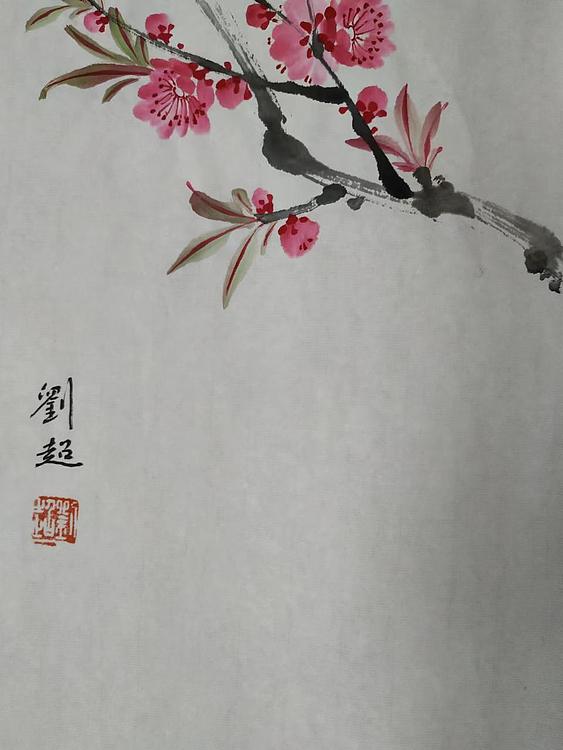 劉超
劉超